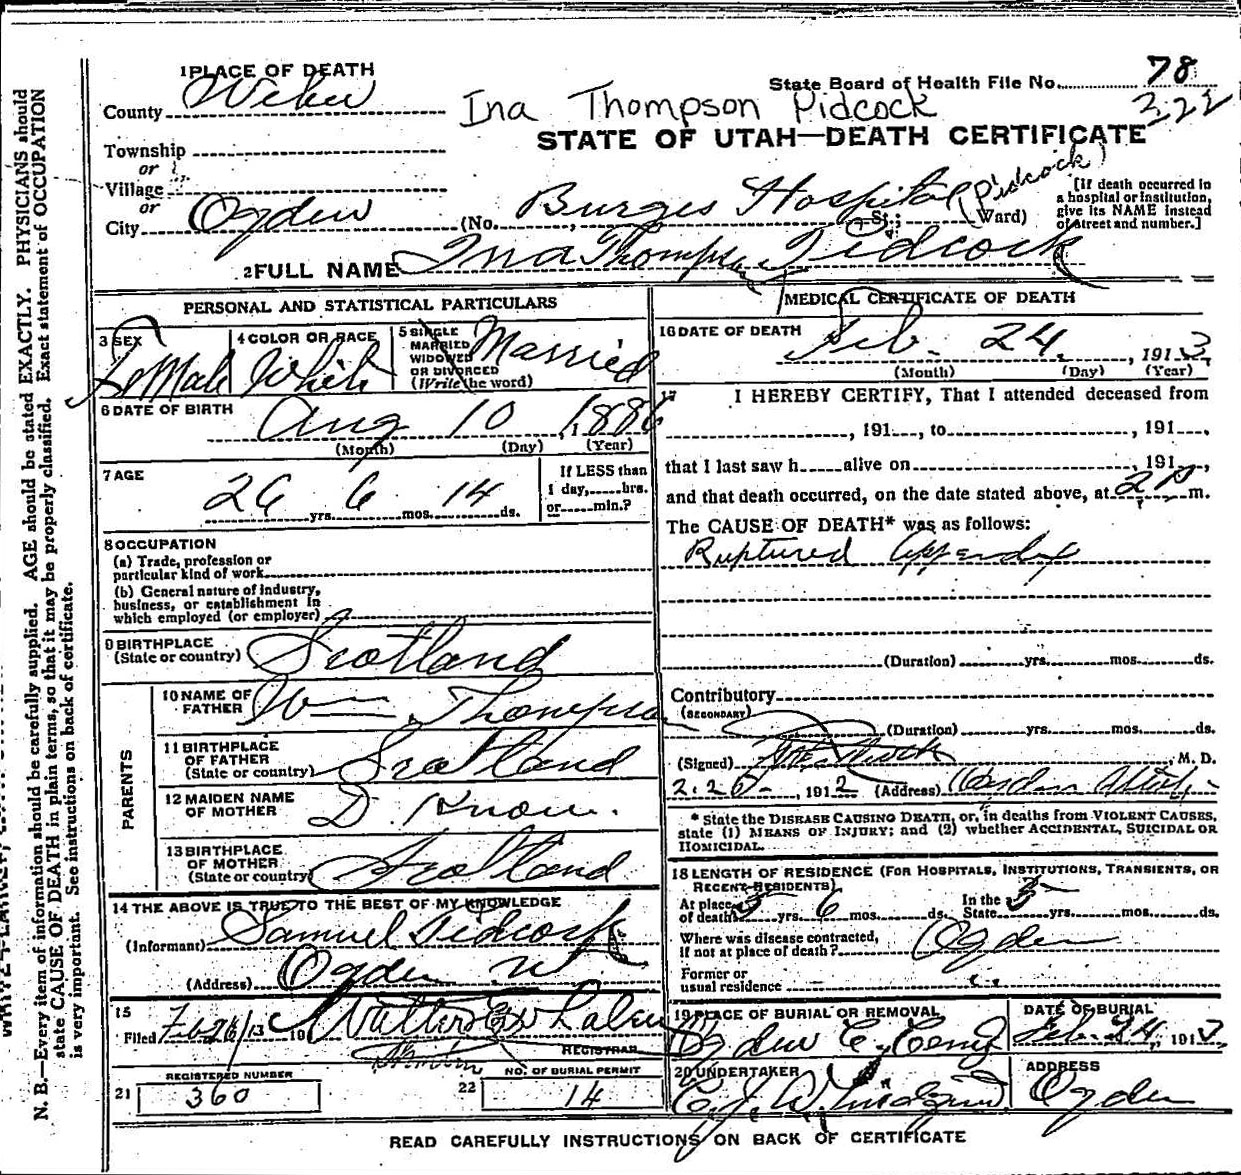 1 PLACE OF DEATH
State Board of Health File No. 78
322
County Weber
Ina Thompson Pidcock
STATE OF UTAH—DEATH CERTIFICATE
Township
or
Village
or
City Ogden (No. Burges Hospital St.; Ward) (Pidcock)
[If death occurred in a hospital or institution, give its NAME instead of street and number.]
2 FULL NAME Ina Thompson Pidcock
PERSONAL AND STATISTICAL PARTICULARS
3 SEX
FeMale
4 COLOR OR RACE
White
5 SINGLE MARRIED WIDOWED OR DIVORCED (Write the word)
Married
6 DATE OF BIRTH
Aug 10, 1886
(Month) (Day) (Year)
7 AGE
26 yrs. 6 mos. 14 ds.
If LESS than 1 day, hrs. or min.?
8 OCCUPATION
(a) Trade, profession or particular kind of work
(b) General nature of industry, business, or establishment in which employed (or employer)
9 BIRTHPLACE
(State or country) Scotland
PARENTS
10 NAME OF FATHER Wm Thompson
11 BIRTHPLACE OF FATHER
(State or country) Scotland
12 MAIDEN NAME OF MOTHER D. Know.
13 BIRTHPLACE OF MOTHER
(State or country) Scotland
14 THE ABOVE IS TRUE TO THE BEST OF MY KNOWLEDGE
(Informant) Samuel Pidcock
(Address) Ogden Ut
15
Filed Feb 26/13 191 Walter E Whalen
REGISTRAR
REGISTERED NUMBER
21 360
NO. OF BURIAL PERMIT
22 14
MEDICAL CERTIFICATE OF DEATH
16 DATE OF DEATH
Feb. 24, 1913
(Month) (Day) (Year)
17 I HEREBY CERTIFY, That I attended deceased from
, 191 , to , 191 ,
that I last saw h alive on , 191 ,
and that death occurred, on the date stated above, at 2 P m.
The CAUSE OF DEATH* was as follows:
Ruptured appendix
(Duration) yrs. mos. ds.
Contributory
(SECONDARY)
(Duration) yrs. mos. ds.
(Signed) , M. D.
, 1912 (Address) Ogden Utah
* State the DISEASE CAUSING DEATH, or, in deaths from VIOLENT CAUSES, state (1) MEANS OF INJURY; and (2) whether ACCIDENTAL, SUICIDAL OR HOMICIDAL.
18 LENGTH OF RESIDENCE (FOR HOSPITALS, INSTITUTIONS, TRANSIENTS, OR RECENT RESIDENTS)
At place of death 5 yrs. 6 mos. ds. In the State yrs. mos. ds.
Where was disease contracted, if not at place of death? Ogden
Former or usual residence
19 PLACE OF BURIAL OR REMOVAL
Ogden C. Cemy
DATE OF BURIAL
Feb. 24, 1913
20 UNDERTAKER
ADDRESS
Ogden
READ CAREFULLY INSTRUCTIONS ON BACK OF CERTIFICATE
N. B.—Every item of information should be carefully supplied. AGE should be stated EXACTLY. PHYSICIANS should
state CAUSE OF DEATH in plain terms, so that it may be properly classified. Exact statement of OCCUPATION
is very important. See instructions on back of certificate.